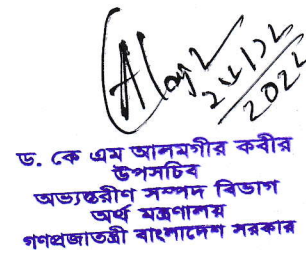 ২৮/১২/২০২২
ড. কে এম আলমগীর কবীর
উপসচিব
অভ্যন্তরীণ সম্পদ বিভাগ
অর্থ মন্ত্রণালয়
গণপ্রজাতন্ত্রী বাংলাদেশ সরকার